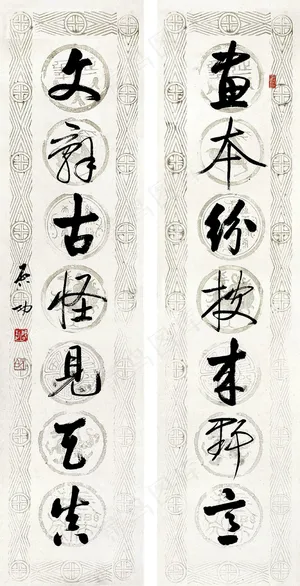 畫本紛披來野意
文辭古怪見天真
啟功